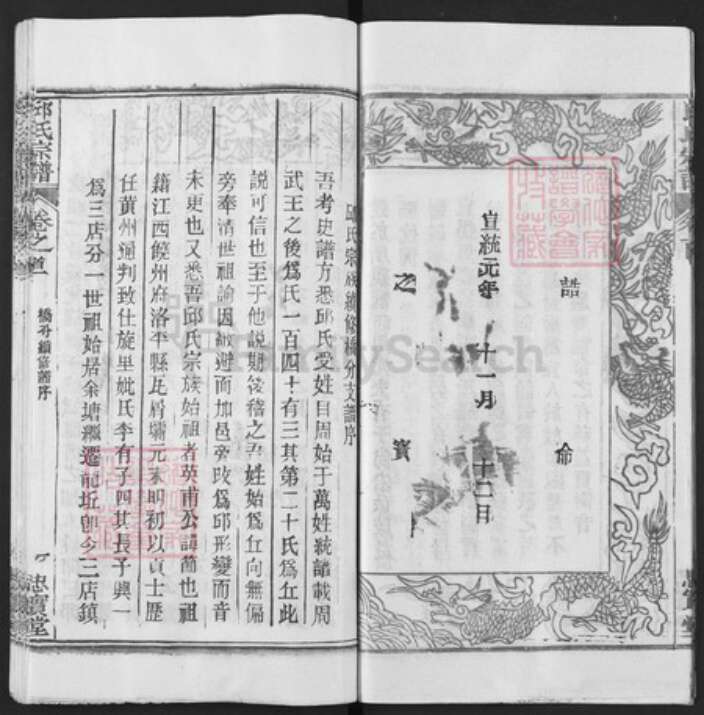 誥
命
宣統元年
十一月
十二日
之
寶
邱氏宗祠續修橋分支譜序
吾考史譜方悉邱氏受姓目周始于萬姓統譜載周
武王之後爲氏一百四十有三其第二十氏爲丘此
說可信也至于他說則後稽之吾姓始爲丘向無偏
旁奉清世祖諭因避而加邑旁改爲邱形變而音
未更也又悉吾邱氏宗族始祖者英甫公諱蕳也祖
籍江西饒州府洛平縣瓦屑壩元末明初以貢士歷
任黄州通判致仕旋里妣氏李有子四其長子興一
爲三店分一世祖始居余塘繼遷前坵卽今三店鎮
邱氏宗譜
卷之首
橋分續修譜序
忠實堂
FamilySearch